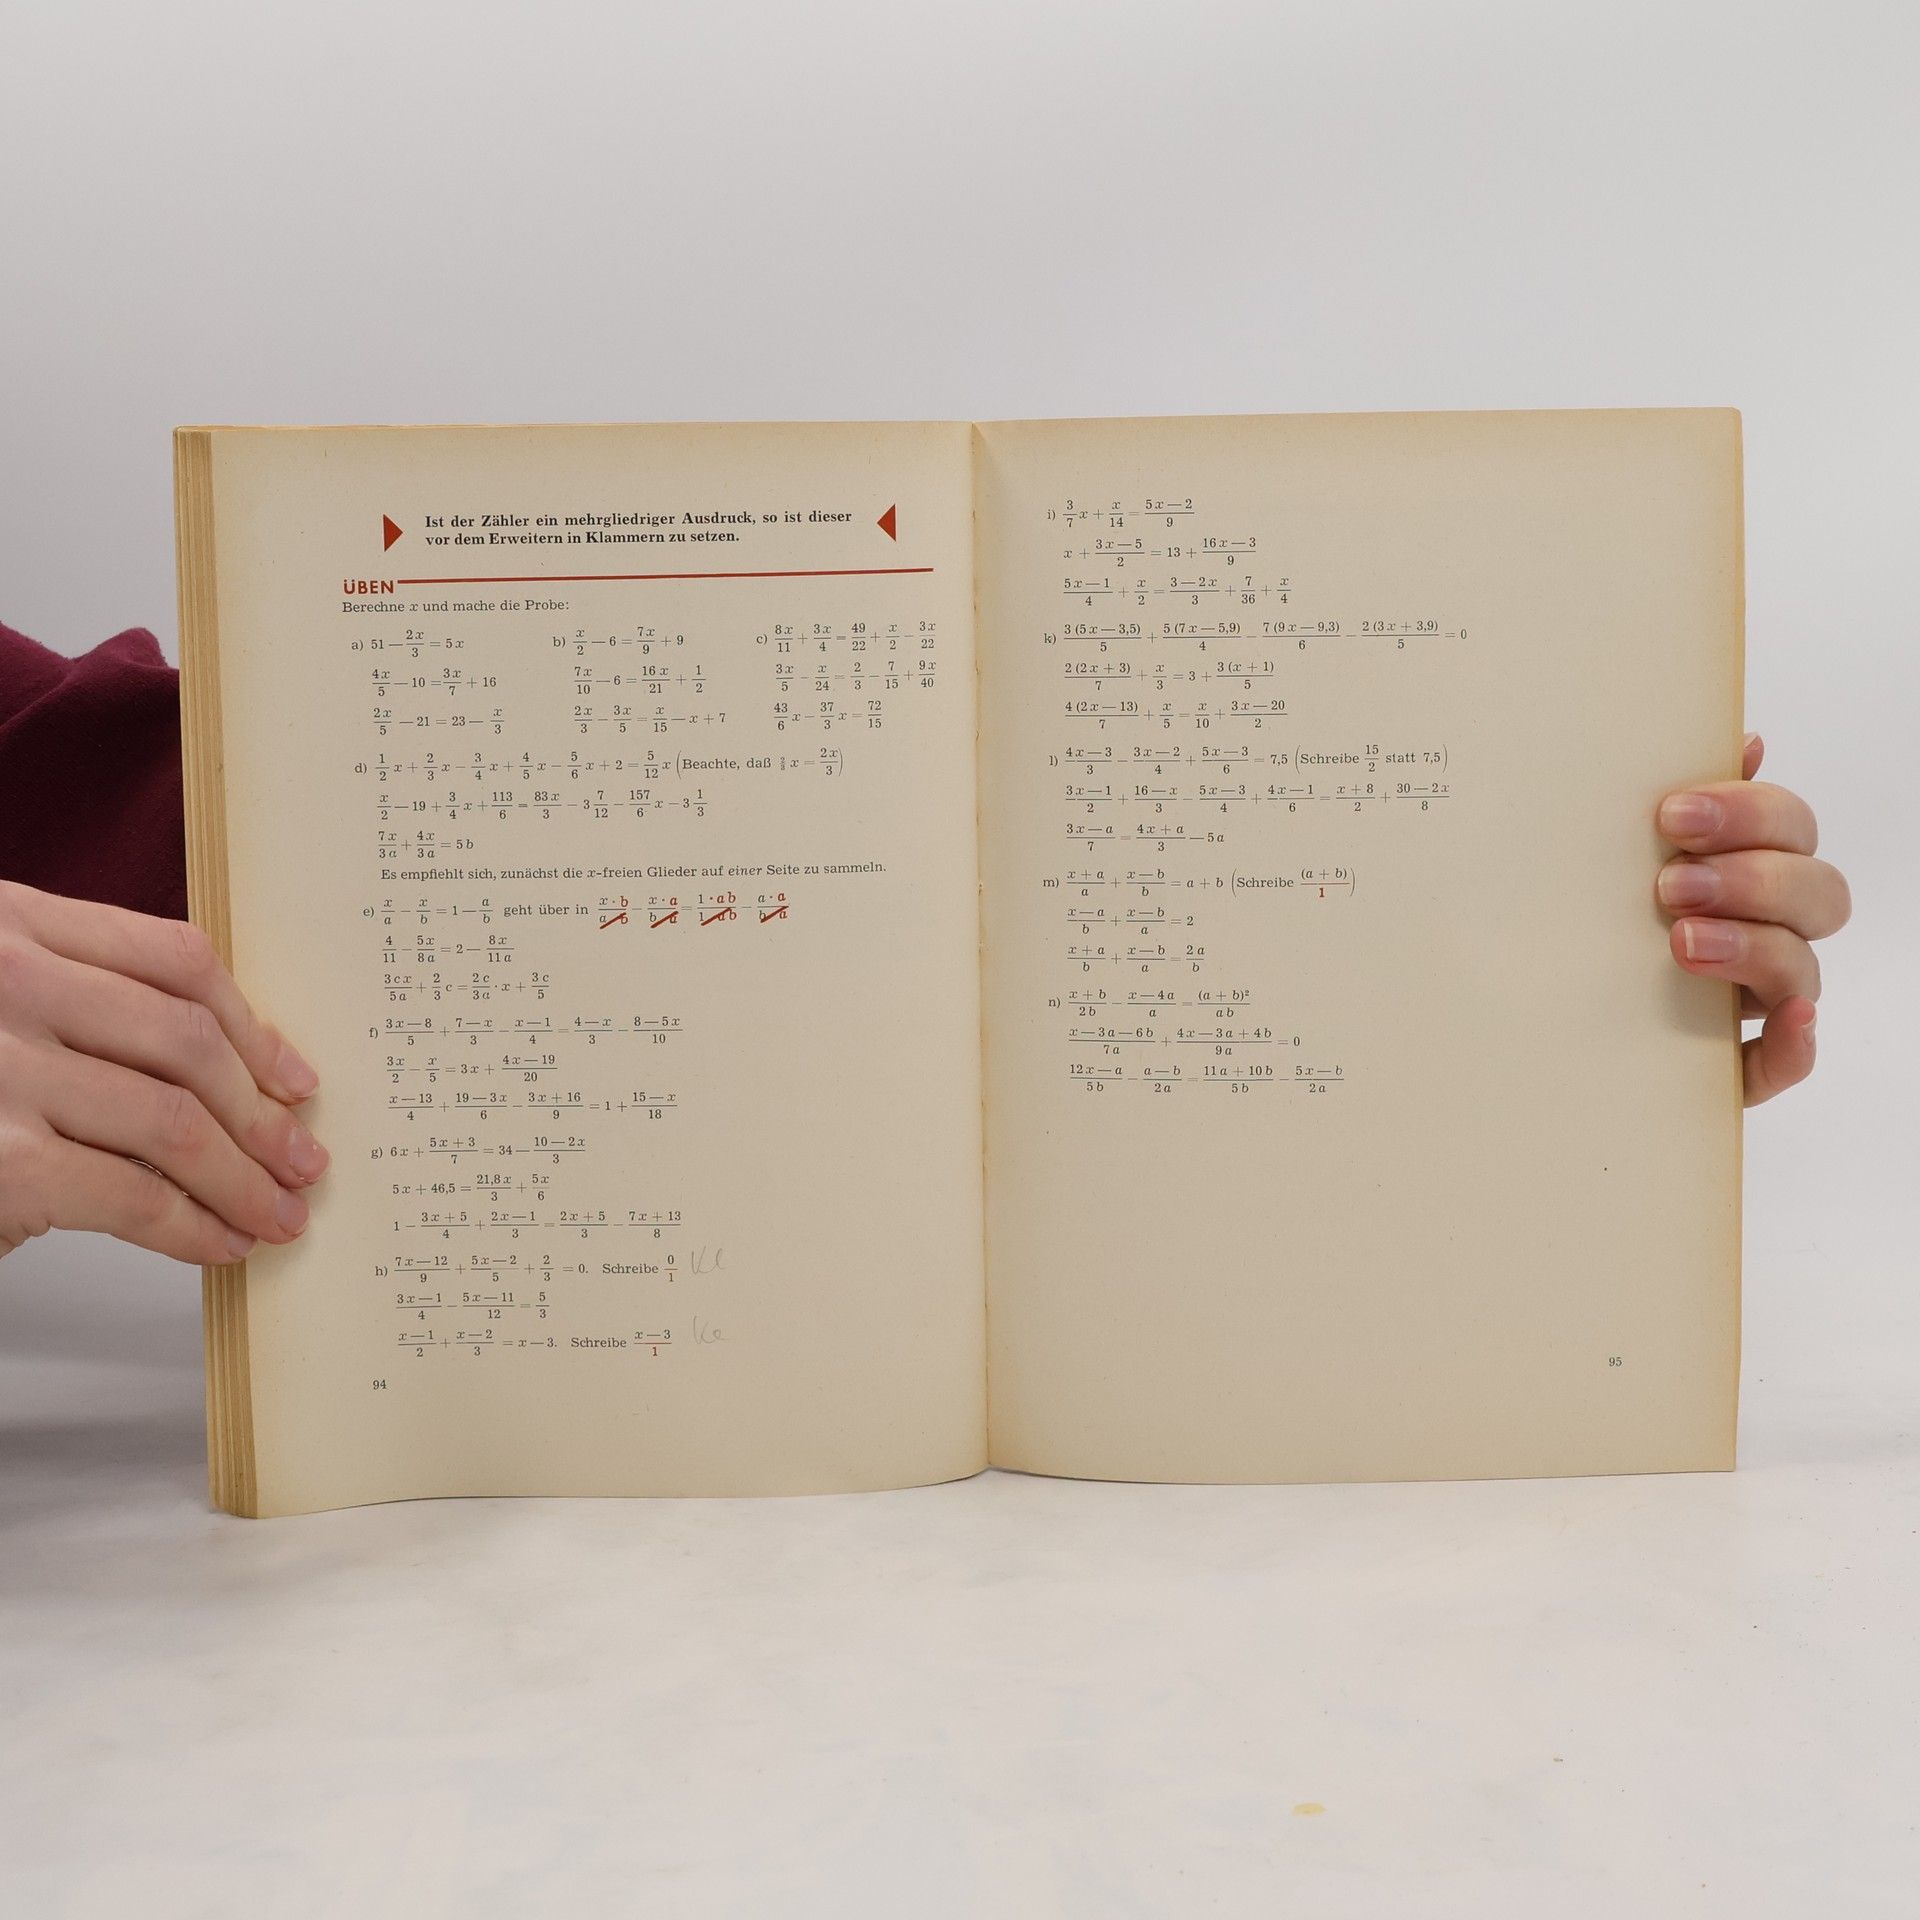 Ist der Zähler ein mehrgliedriger Ausdruck, so ist dieser
vor dem Erweitern in Klammern zu setzen.
ÜBEN
Berechne x und mache die Probe:
a) 51 — 2x/3 = 5x
4x/5 — 10 = 3x/7 + 16
2x/5 — 21 = 23 — x/3
b) x/2 — 6 = 7x/9 + 9
7x/10 — 6 = 16x/21 + 1/2
2x/3 — 3x/5 = x/15 — x + 7
c) 8x/11 + 3x/4 = 49/22 + x/2 — 3x/22
3x/5 — x/24 = 2/3 — 7/15 + 9x/40
43/6 x — 37/3 x = 72/15
d) 1/2 x + 2/3 x — 3/4 x + 4/5 x — 5/6 x + 2 = 5/12 x (Beachte, daß 2/3 x = 2x/3)
x/2 — 19 + 3/4 x + 113/6 = 83x/3 — 3 7/12 — 157/6 x — 3 1/3
7x/3a + 4x/3a = 5b
Es empfiehlt sich, zunächst die x-freien Glieder auf einer Seite zu sammeln.
e) x/a — x/b = 1 — a/b geht über in x · b/a b — x · a/b a = 1 · ab/1 ab — a · a/b a
4/11 — 5x/8a = 2 — 8x/11a
3cx/5a + 2/3 c = 2c/3a · x + 3c/5
f) 3x — 8/5 + 7 — x/3 — x — 1/4 = 4 — x/3 — 8 — 5x/10
3x/2 — x/5 = 3x + 4x — 19/20
x — 13/4 + 19 — 3x/6 — 3x + 16/9 = 1 + 15 — x/18
g) 6x + 5x + 3/7 = 34 — 10 — 2x/3
5x + 46,5 = 21,8x/3 + 5x/6
1 — 3x + 5/4 + 2x — 1/3 = 2x + 5/3 — 7x + 13/8
h) 7x — 12/9 + 5x — 2/5 + 2/3 = 0. Schreibe 0/1
3x — 1/4 — 5x — 11/12 = 5/3
x — 1/2 + x — 2/3 = x — 3. Schreibe x — 3/1
94
i) 3/7 x + x/14 = 5x — 2/9
x + 3x — 5/2 = 13 + 16x — 3/9
5x — 1/4 + x/2 = 3 — 2x/3 + 7/36 + x/4
k) 3 (5x — 3,5)/5 + 5 (7x — 5,9)/4 — 7 (9x — 9,3)/6 — 2 (3x + 3,9)/5 = 0
2 (2x + 3)/7 + x/3 = 3 + 3 (x + 1)/5
4 (2x — 13)/7 + x/5 = x/10 + 3x — 20/2
l) 4x — 3/3 — 3x — 2/4 + 5x — 3/6 = 7,5 (Schreibe 15/2 statt 7,5)
3x — 1/2 + 16 — x/3 — 5x — 3/4 + 4x — 1/6 = x + 8/2 + 30 — 2x/8
3x — a/7 = 4x + a/3 — 5a
m) x + a/a + x — b/b = a + b (Schreibe (a + b)/1)
x — a/b + x — b/a = 2
x + a/b + x — b/a = 2a/b
n) x + b/2b — x — 4a/a = (a + b)²/ab
x — 3a — 6b/7a + 4x — 3a + 4b/9a = 0
12x — a/5b — a — b/2a = 11a + 10b/5b — 5x — b/2a
95